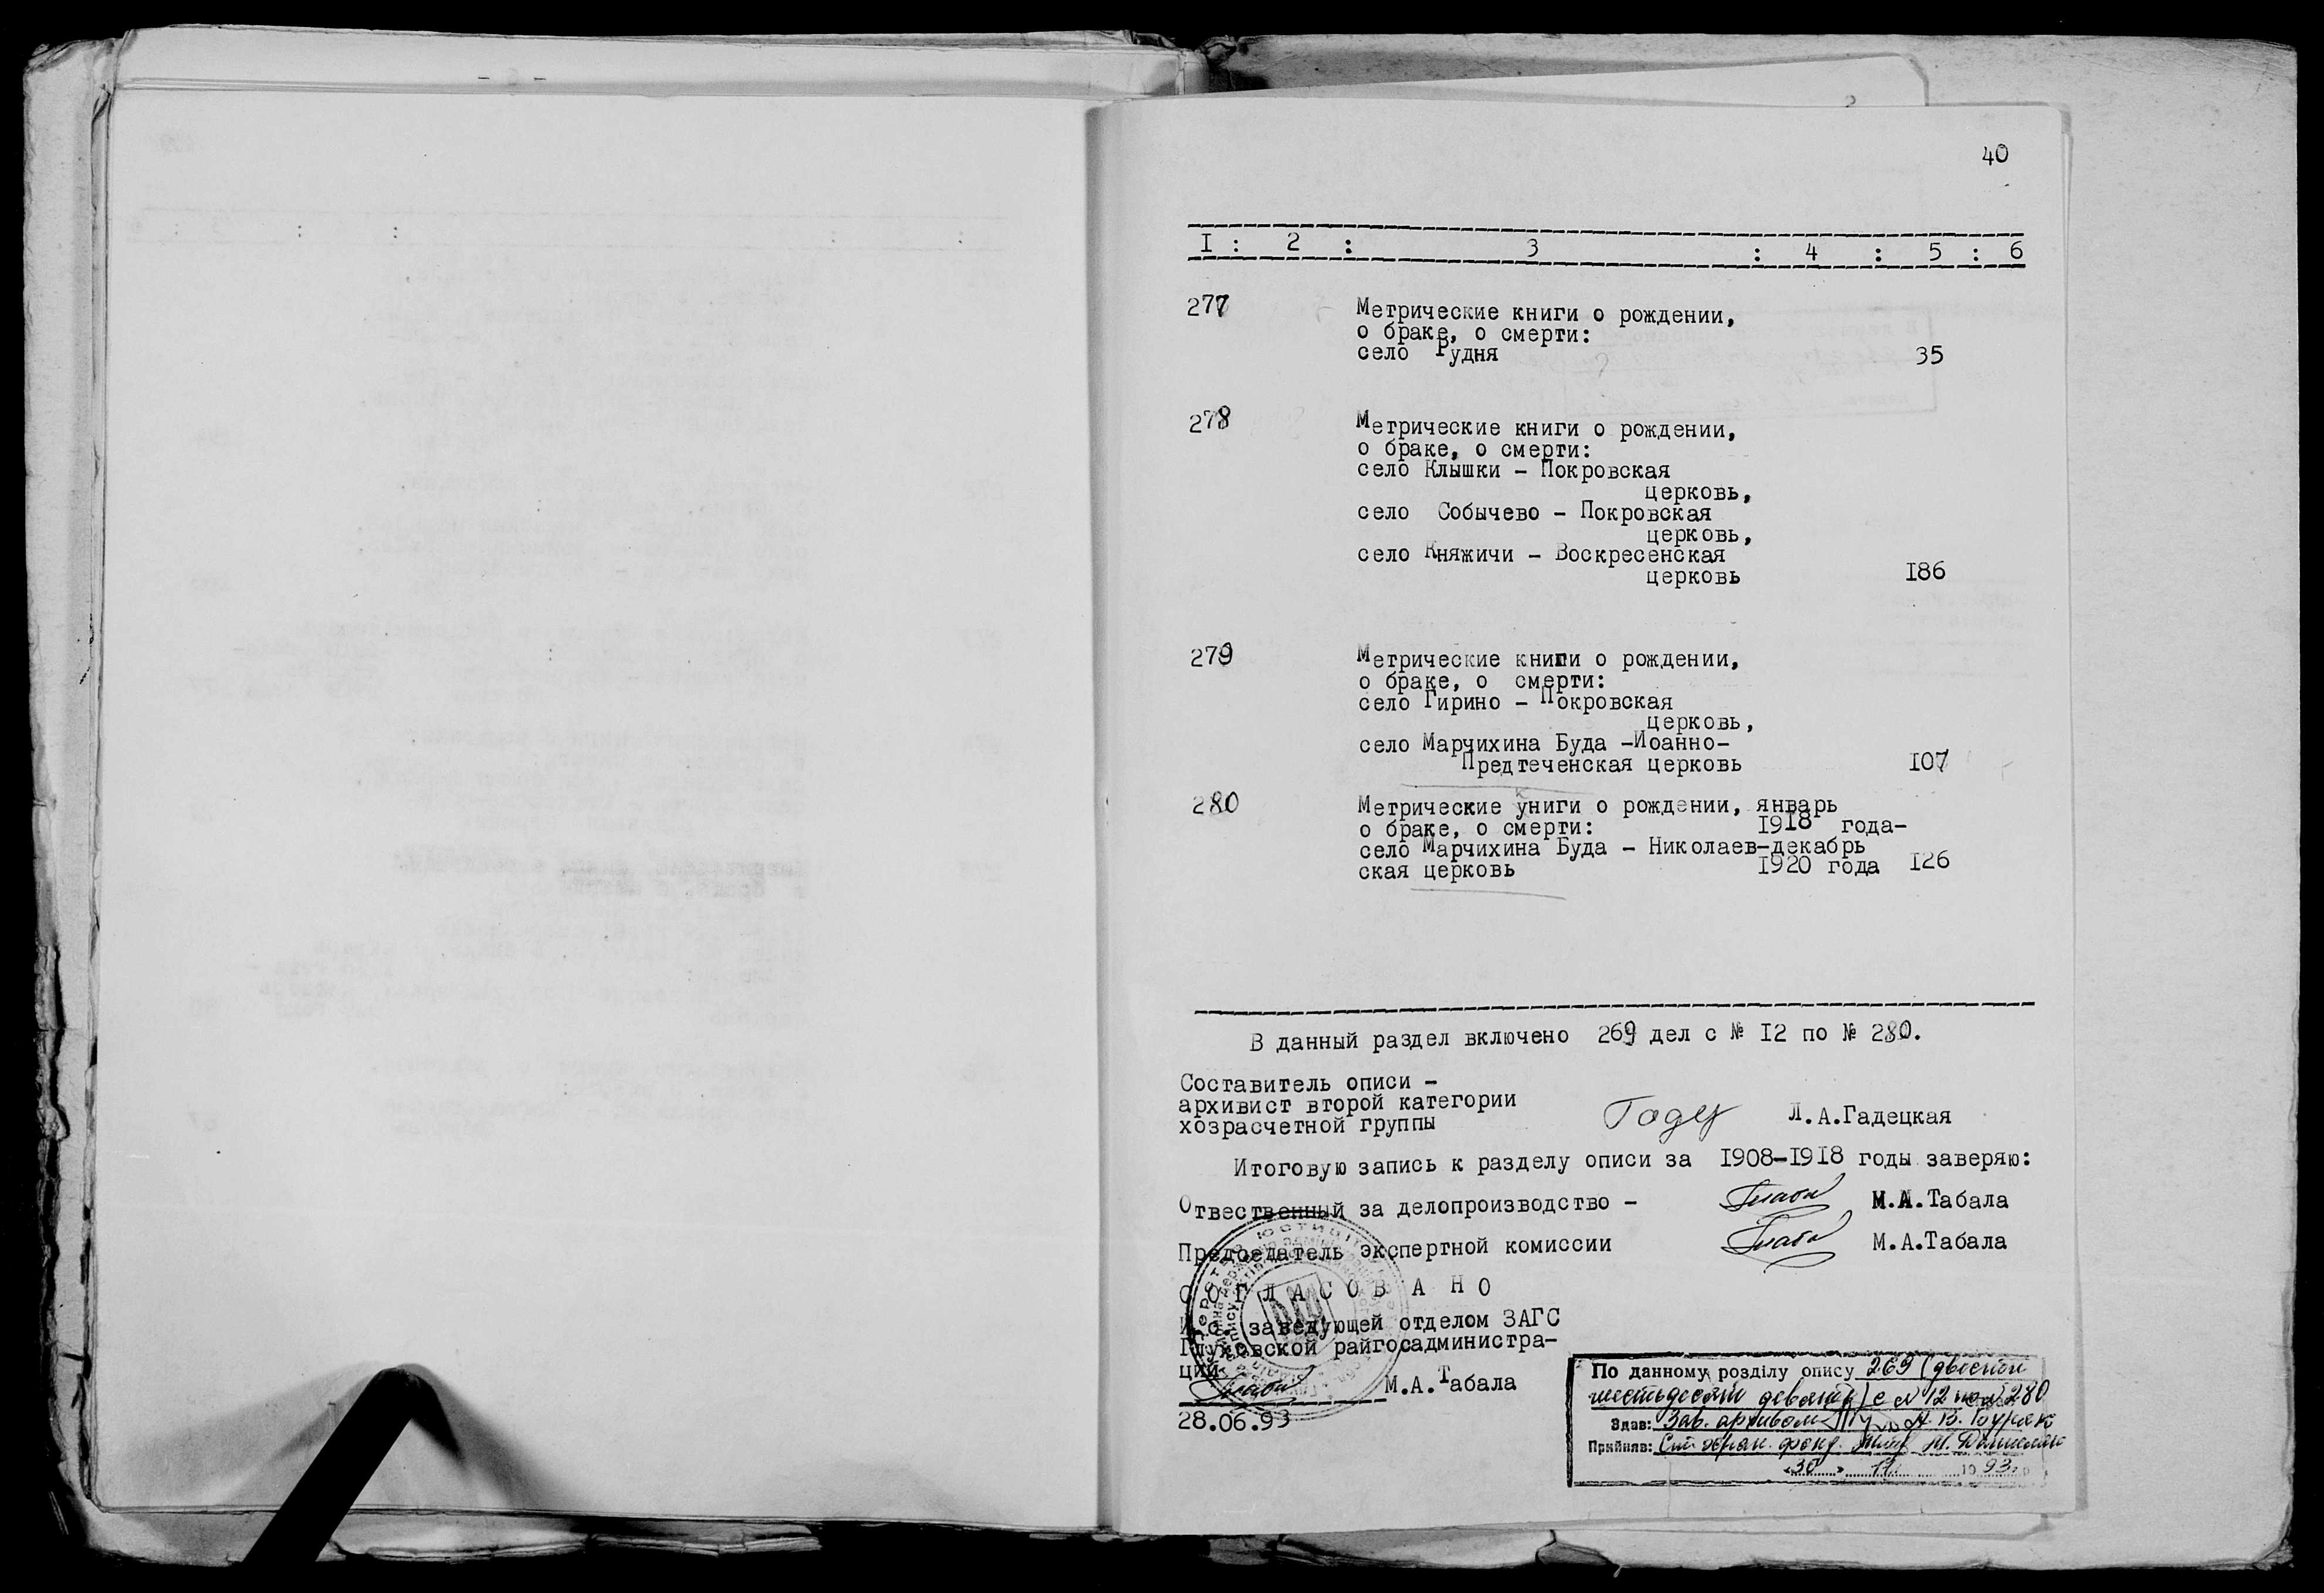 40
I : 2 : 3 : 4 : 5 : 6
277 Метрические книги о рождении,
о браке, о смерти:
село Рудня 35
278 Метрические книги о рождении,
о браке, о смерти:
село Клышки - Покровская
церковь,
село Собычево - Покровская
церковь,
село Княжичи - Воскресенская
церковь I86
279 Метрические книги о рождении,
о браке, о смерти:
село Гирино - Покровская
церковь,
село Марчихина Буда -Иоанно-
Предтеченская церковь I07
280 Метрические книги о рождении, январь
о браке, о смерти: I9I8 года-
село Марчихина Буда - Николаев-декабрь
ская церковь I920 года I26
В данный раздел включено 269 дел с № I2 по № 280.
Составитель описи -
архивист второй категории
хозрасчетной группы Гадец Л.А.Гадецкая
Итоговую запись к разделу описи за I908-I9I8 годы заверяю:
Отвественный за делопроизводство - М.А.Табала
Председатель экспертной комиссии М.А.Табала
С О Г Л А С О В А Н О
И.о. заведующей отделом ЗАГС
Глуховской райгосадминистра-
ции М.А.Табала
28.06.93
По данному розділу опису 269 (двести
шестьдесят девять) с № 12 по № 280
Здав: Зав. архивом
Прийняв: фонд.
«30» 11 1993 г.